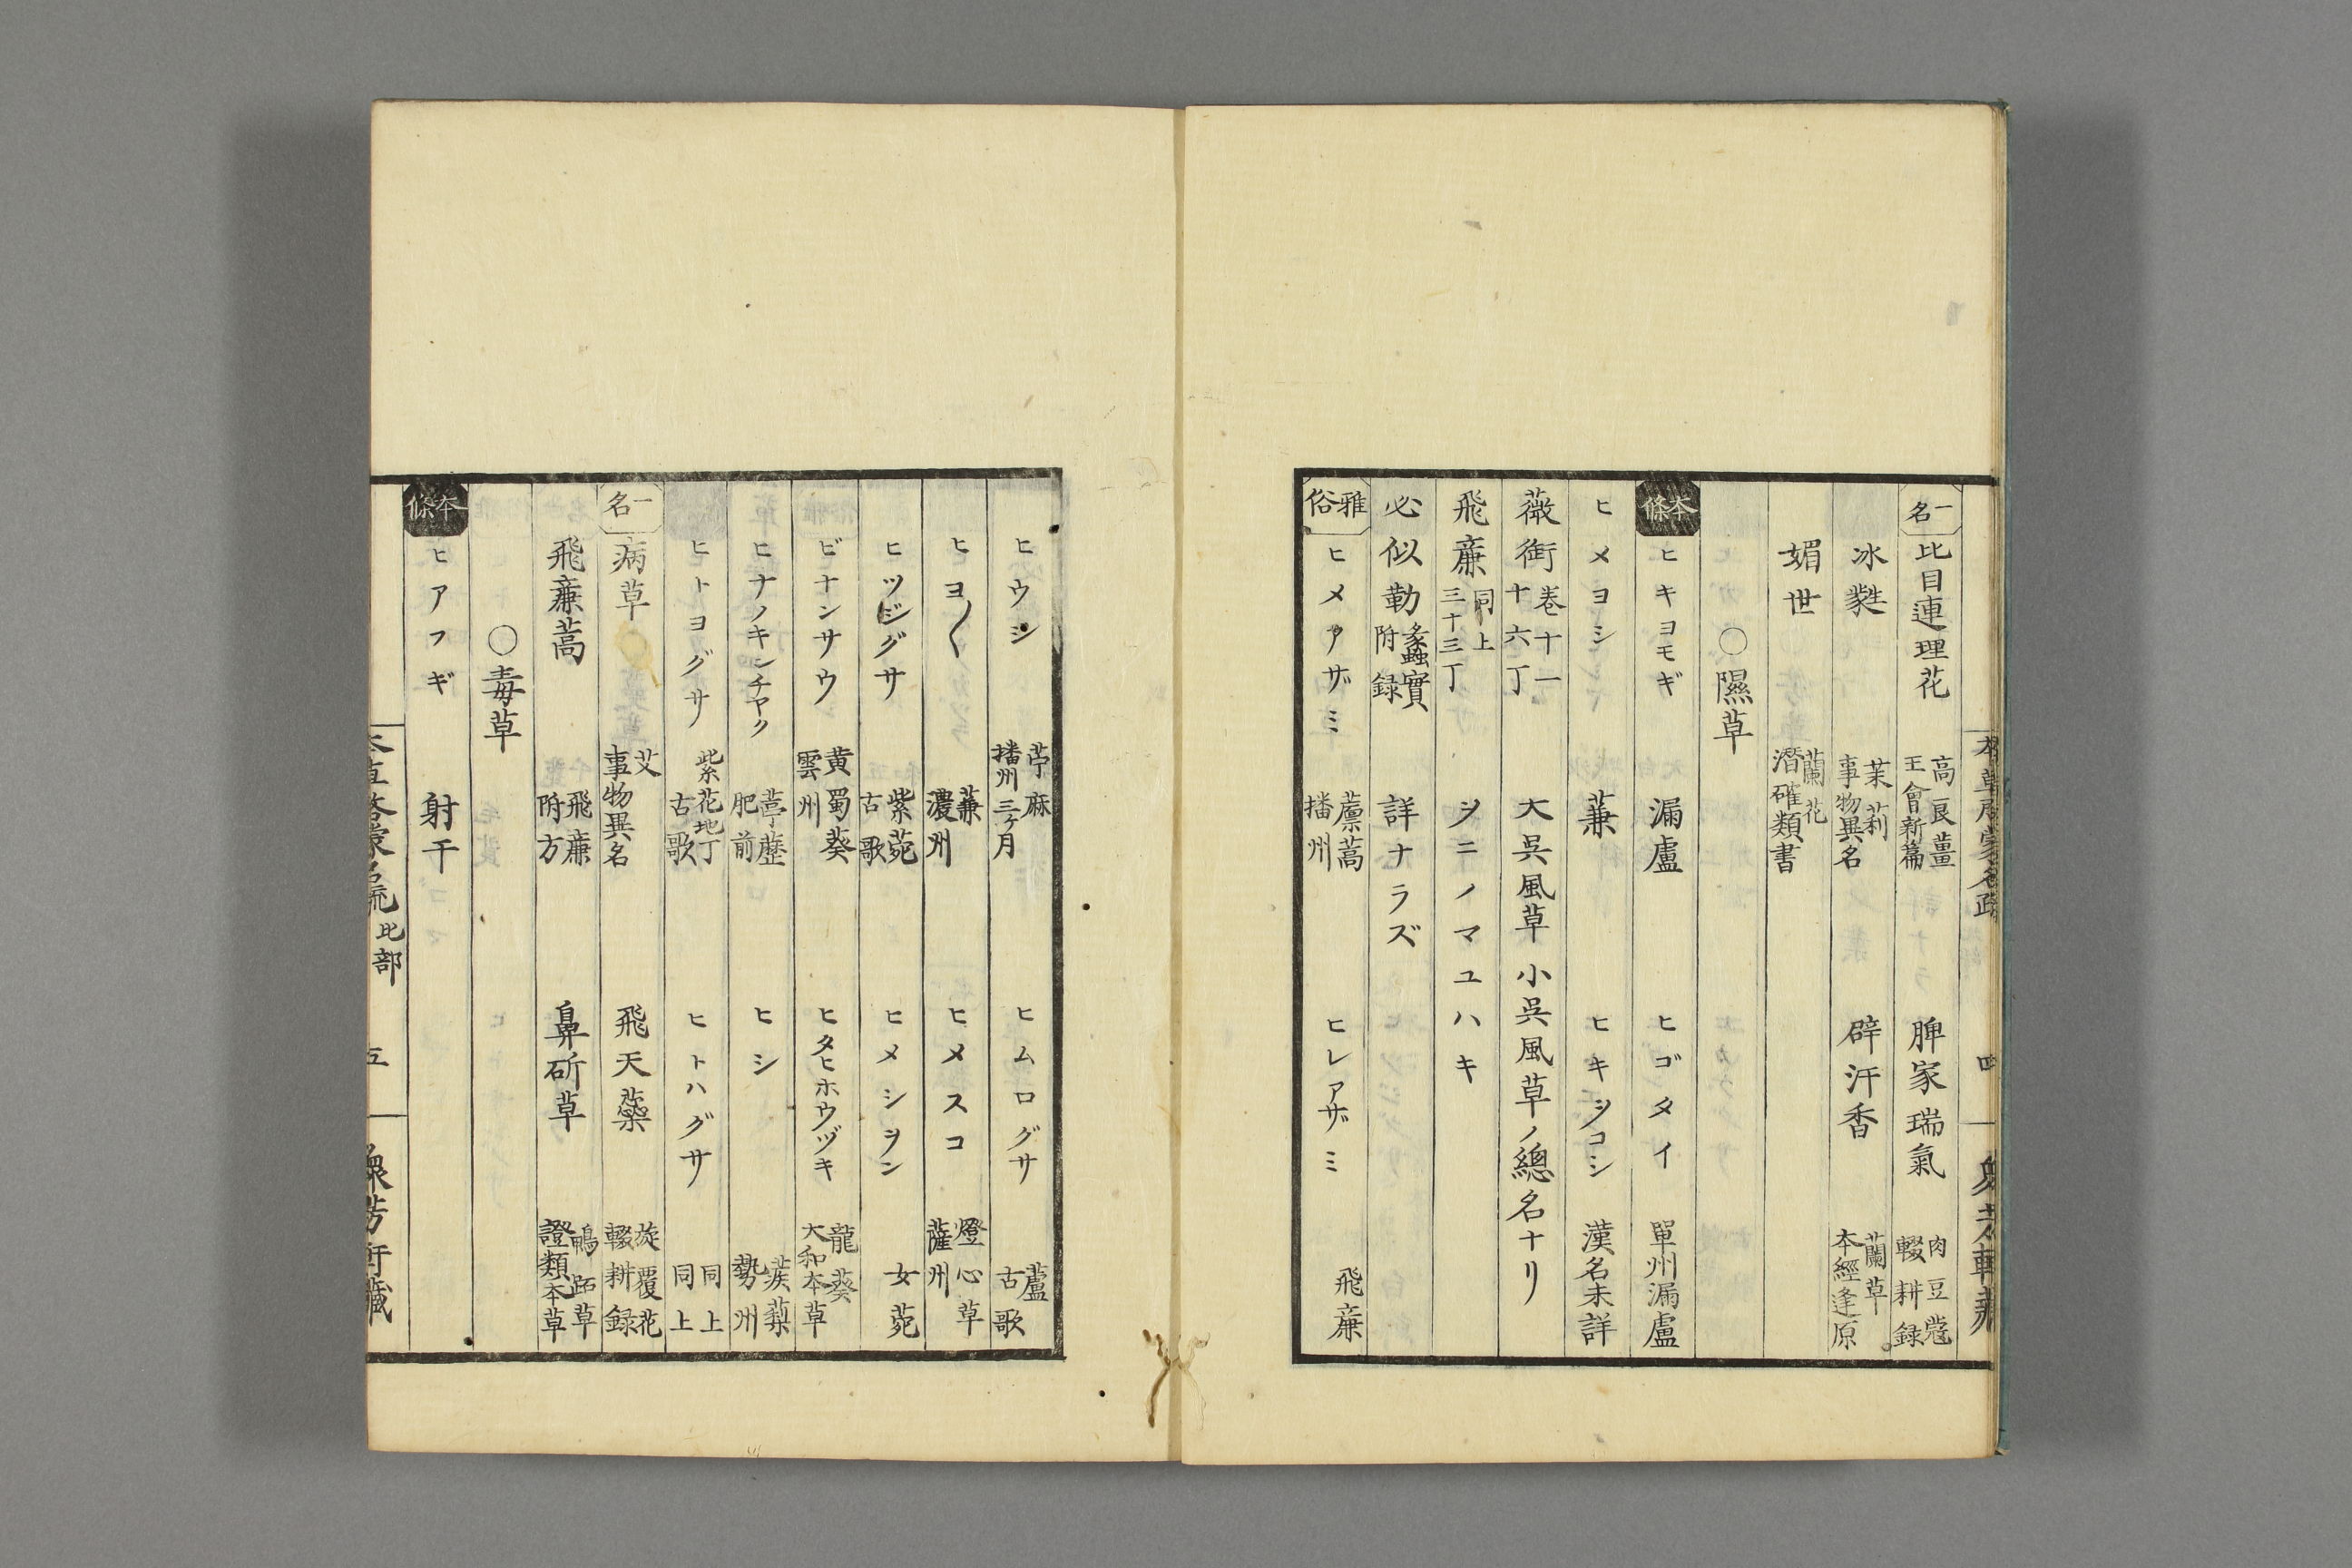 本草啓蒙名疏
四
衆芳軒藏
一名 比目連理花 高良薑 王會新篇 脾家瑞氣 肉豆蔻 輟耕録
冰甤 茉莉 事物異名 辟汗香 蘭草 本經逢原
媚世 蘭花 潛確類書
〇隰草
本條 ヒキヨモギ 漏盧 ヒゴタイ 單州漏盧
ヒメヨシ 蒹 ヒキヲコシ 漢名未詳
薇銜 卷十一 十六丁 大呉風草 小呉風草ノ總名ナリ
飛廉 同上 三十三丁 ヲニノマユハキ
必似勒 蠡實 附録 詳ナラズ
雅俗 ヒメアザミ 薰蒿 播州 ヒレアザミ 飛廉
ヒウジ 苧麻 播州三ケ月 ヒムログサ 蘆 古歌
ヒヨ〱 蒹 濃州 ヒメスコ 燈心草 薩州
ヒツジグサ 紫菀 古歌 ヒメシヲン 女菀
ビナンサウ 黄蜀葵 雲州 ヒタヒホウヅキ 龍葵 大和本草
ヒナノキンチヤク 葶藶 肥前 ヒシ 蒺蔾 勢州
ヒトヨグサ 紫花地丁 古歌 ヒトハグサ 同上 同上
一名 病草 艾 事物異名 飛天蘂 旋覆花 輟耕録
飛廉蒿 飛廉 附方 鼻斫草 鴨跖草 證類本草
〇毒草
本條 ヒアフギ 射干
本草啓蒙名疏 比部
五
衆芳軒藏